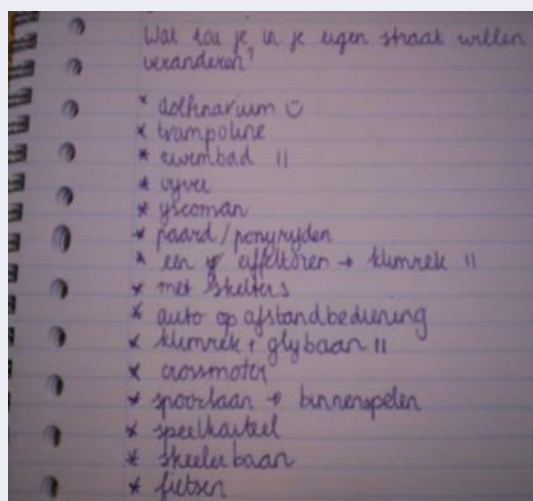 Wat zou je in je eigen straat willen
veranderen?
* dolfinarium ☺
* trampoline
* zwembad ||
* vyver
* yscoman
* paard/ponyryden
* een eiffeltoren → klimrek ||
* met skelters
* auto op afstandbediening
* klimrek + glybaan ||
* crossmoter
* spoorlaan → binnenspelen
* speelkasteel
* skeelerbaan
* fietsen